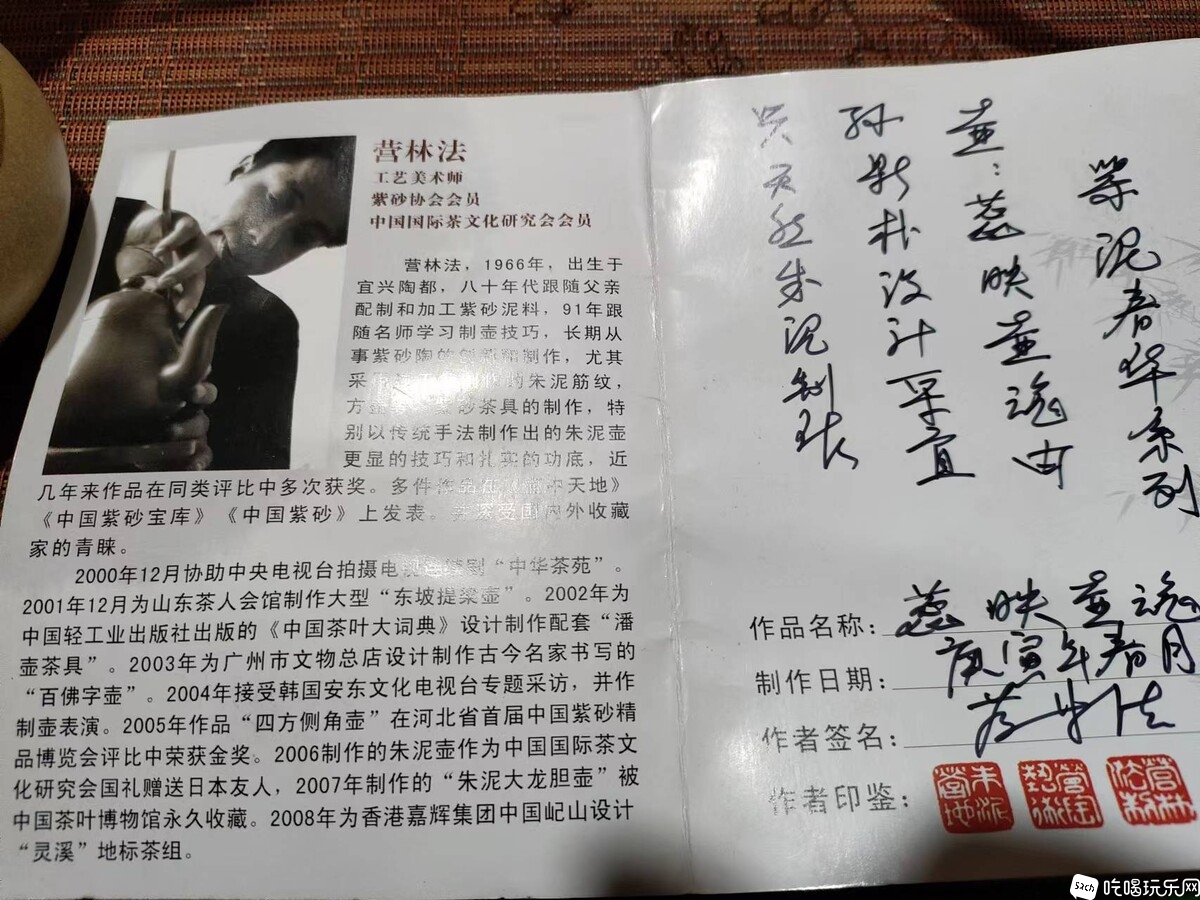 营林法
工艺美术师
紫砂协会会员
中国国际茶文化研究会会员
营林法，1966年，出生于
宜兴陶都，八十年代跟随父亲
配制和加工紫砂泥料，91年跟
随名师学习制壶技巧，长期从
事紫砂陶的创新和制作，尤其
采 的朱泥筋纹，
方 砂茶具的制作，特
别以传统手法制作出的朱泥壶
更显的技巧和扎实的功底，近
几年来作品在同类评比中多次获奖。多件作品在《壶中天地》
《中国紫砂宝库》《中国紫砂》上发表。并深受国内外收藏
家的青睐。
2000年12月协助中央电视台拍摄电视 “中华茶苑”。
2001年12月为山东茶人会馆制作大型“东坡提梁壶”。2002年为
中国轻工业出版社出版的《中国茶叶大词典》设计制作配套“潘
壶茶具”。2003年为广州市文物总店设计制作古今名家书写的
“百佛字壶”。2004年接受韩国安东文化电视台专题采访，并作
制壶表演。2005年作品“四方侧角壶”在河北省首届中国紫砂精
品博览会评比中荣获金奖。2006制作的朱泥壶作为中国国际茶文
化研究会国礼赠送日本友人，2007年制作的“朱泥大龙胆壶”被
中国茶叶博物馆永久收藏。2008年为香港嘉辉集团中国屺山设计
“灵溪”地标茶组。
紫泥春华系列
壶：蕊映壶魂由
孙新朴设计采宜
兴天然朱泥制张
作品名称：蕊映壶魂
制作日期：庚寅年春月
作者签名：营林法
作者印鉴：
吃喝玩乐网